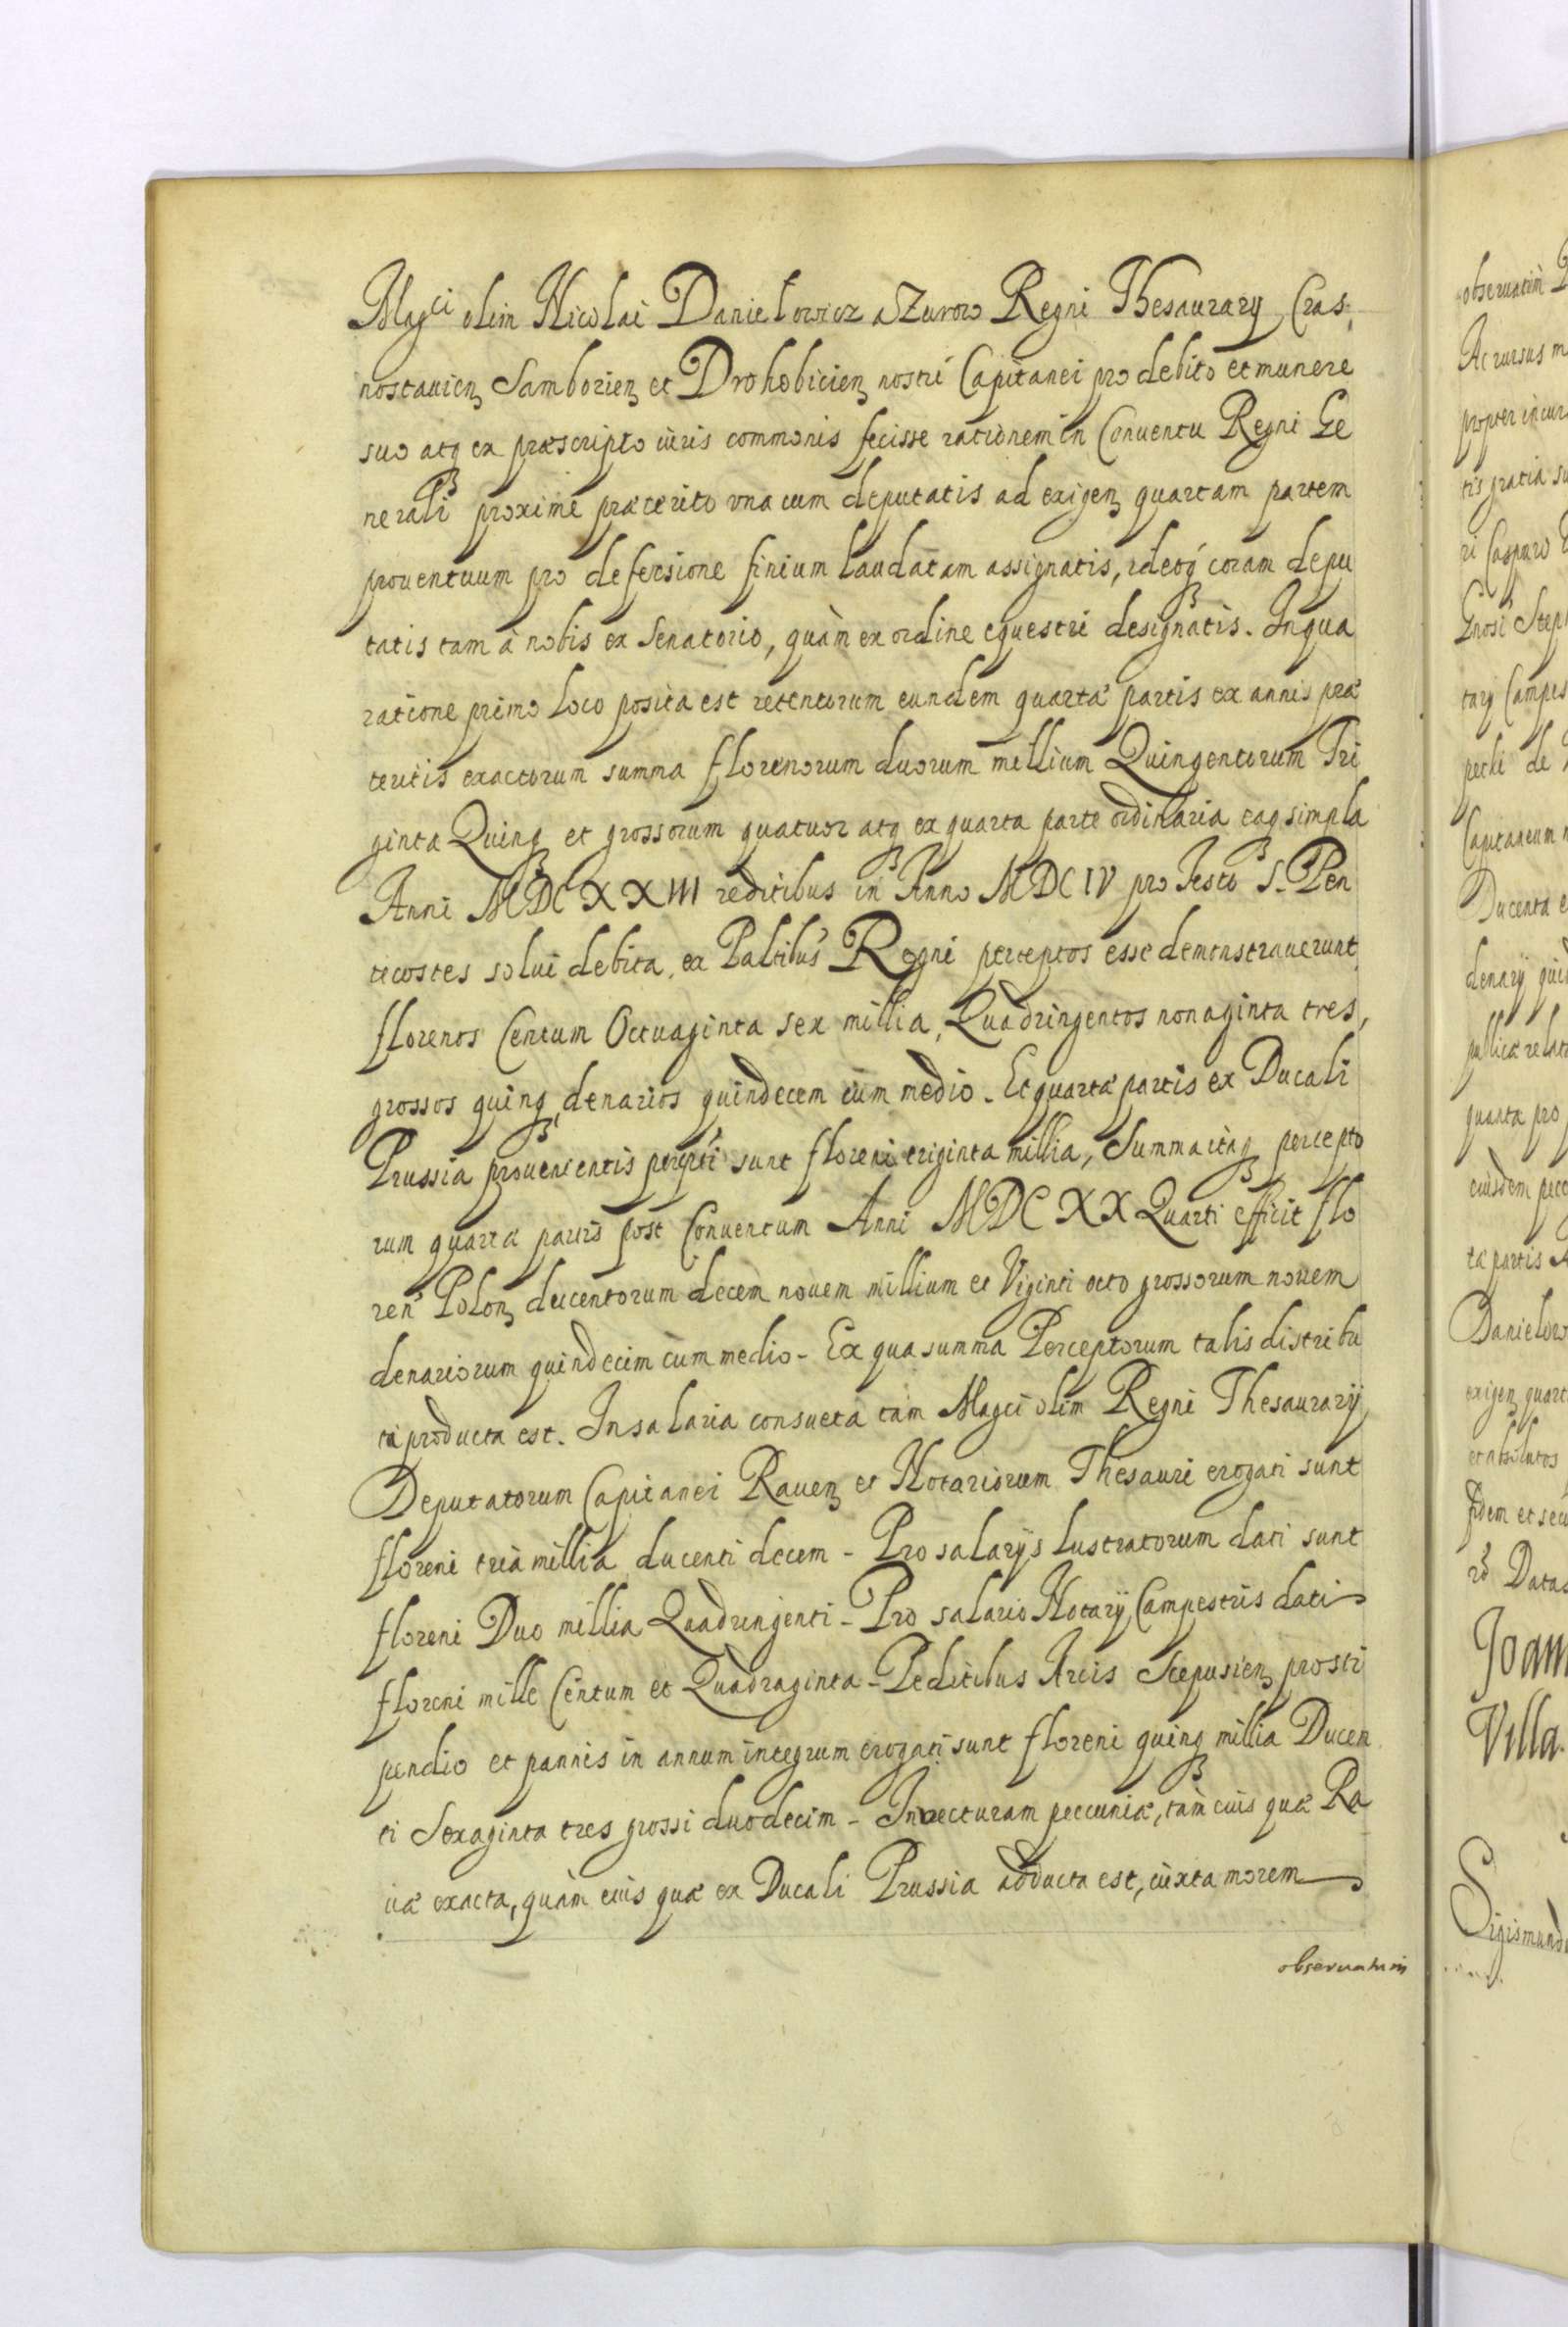 Mag^ci olim Nicolai Danielowicz a Zurow Regni Thesaurarij Cras,
nostauienꝫ Samborienꝫ et Drohobicienꝫ nostri Capitanei pro debito et munere
suo atqꝫ ex præscripto iuris communis fecisse rationem in Conuentu Regni Ge
nerali proximè præterito vna cum deputatis ad exigenꝫ quartam partem
prouentuum pro defensione finium laudatam assignatis, ideoqꝫ coram depu
tatis tam à nobis ex Senatorio, quàm ex ordine equestri designatis. In qua
ratione primo loco posita est retentorum eundem quartæ partis ex annis præ
teritis exactorum summa florenorum duorum millium Quingentorum Tri
ginta Quinqꝫ et grossorum quatuor atqꝫ ex quarta parte ordinaria eaqꝫ simpla
Anni MDCXXIII reditibus in Anno MDCIV pro Festo S. Pen
tecostes solui debita, ex Paltibus Regni perceptos esse demonstrauerunt
florenos Centum Octuaginta sex millia, Quadringentos nonaginta tres,
grossos quinqꝫ, denarios quindecem cum medio. Et quartæ partis ex Ducali
Prussia prouenientis percepti sunt floreni triginta millia, Summa itaqꝫ percepto
rum quartæ partis post Conuentum Anni MDCXX Quarti efficit flo
ren Polonꝫ ducentorum decem nouem millium et Viginti octo grossorum nouem
denariorum quindecim cum medio - Ex qua summa Perceptorum talis distribu
ta producta est. In salaria consueta tam Magci olim Regni Thesaurarij
Deputatorum Capitanei Rauenꝫ et Notariorum Thesauri erogati sunt
floreni tria millia ducenti decem - Pro salarijs lustratorum dati sunt
floreni Duo millia Quadringenti - Pro salario Notarij Campestris dati
floreni mille Centum et Quadraginta - Peditibus Arcis Scepusienꝫ pro sti
pendio et pannis in annum integrum erogati sunt floreni quinqꝫ millia Ducen
ti Sexaginta tres grossi duodecim - In vecturam pecuniæ, tàm eius quæ Ra
uæ exacta, quàm eius quæ ex Ducali Prussia adducta est, iuxta morem
obseruatum
obseruatum
Ac rursus
propter incur
tis gratia
ri Casparo
Gnosi Steph
tarij Campes
de
Capitaneum
Ducenta
denarij
publicæ relat
quarta pro
eiusdem pec
tæ partis
Danielow
exigenꝫ quart
et absolutos
fidem et
Datas
Joan
Villa
Sigismund